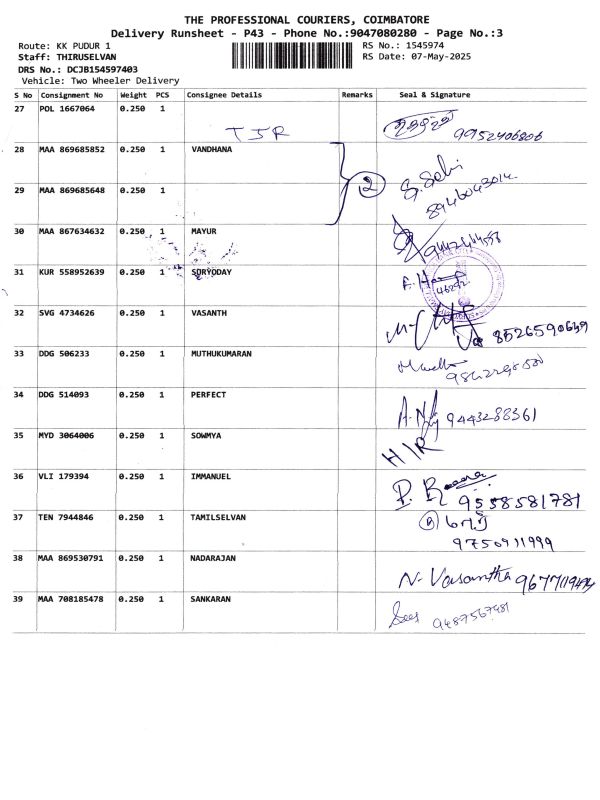 THE PROFESSIONAL COURIERS, COIMBATORE
Delivery Runsheet - P43 - Phone No.:9047080280 - Page No.:3
Route: KK PUDUR 1 RS No.: 1545974
Staff: THIRUSELVAN RS Date: 07-May-2025
DRS No.: DCJB154597403
Vehicle: Two Wheeler Delivery
S No Consignment No Weight PCS Consignee Details Remarks Seal & Signature
27 POL 1667064 0.250 1
TJR 9952406806
28 MAA 869685852 0.250 1 VANDHANA
2
29 MAA 869685648 0.250 1
30 MAA 867634632 0.250 1 MAYUR
31 KUR 558952639 0.250 1 SORYODAY
32 SVG 4734626 0.250 1 VASANTH
8526590649
33 DDG 506233 0.250 1 MUTHUKUMARAN
34 DDG 514093 0.250 1 PERFECT
9443288361
35 MYD 3064006 0.250 1 SOWMYA
H/R
36 VLI 179394 0.250 1 IMMANUEL
9558581781
37 TEN 7944846 0.250 1 TAMILSELVAN
9750911999
38 MAA 869530791 0.250 1 NADARAJAN
N. Vasantha
39 MAA 708185478 0.250 1 SANKARAN
9487567481